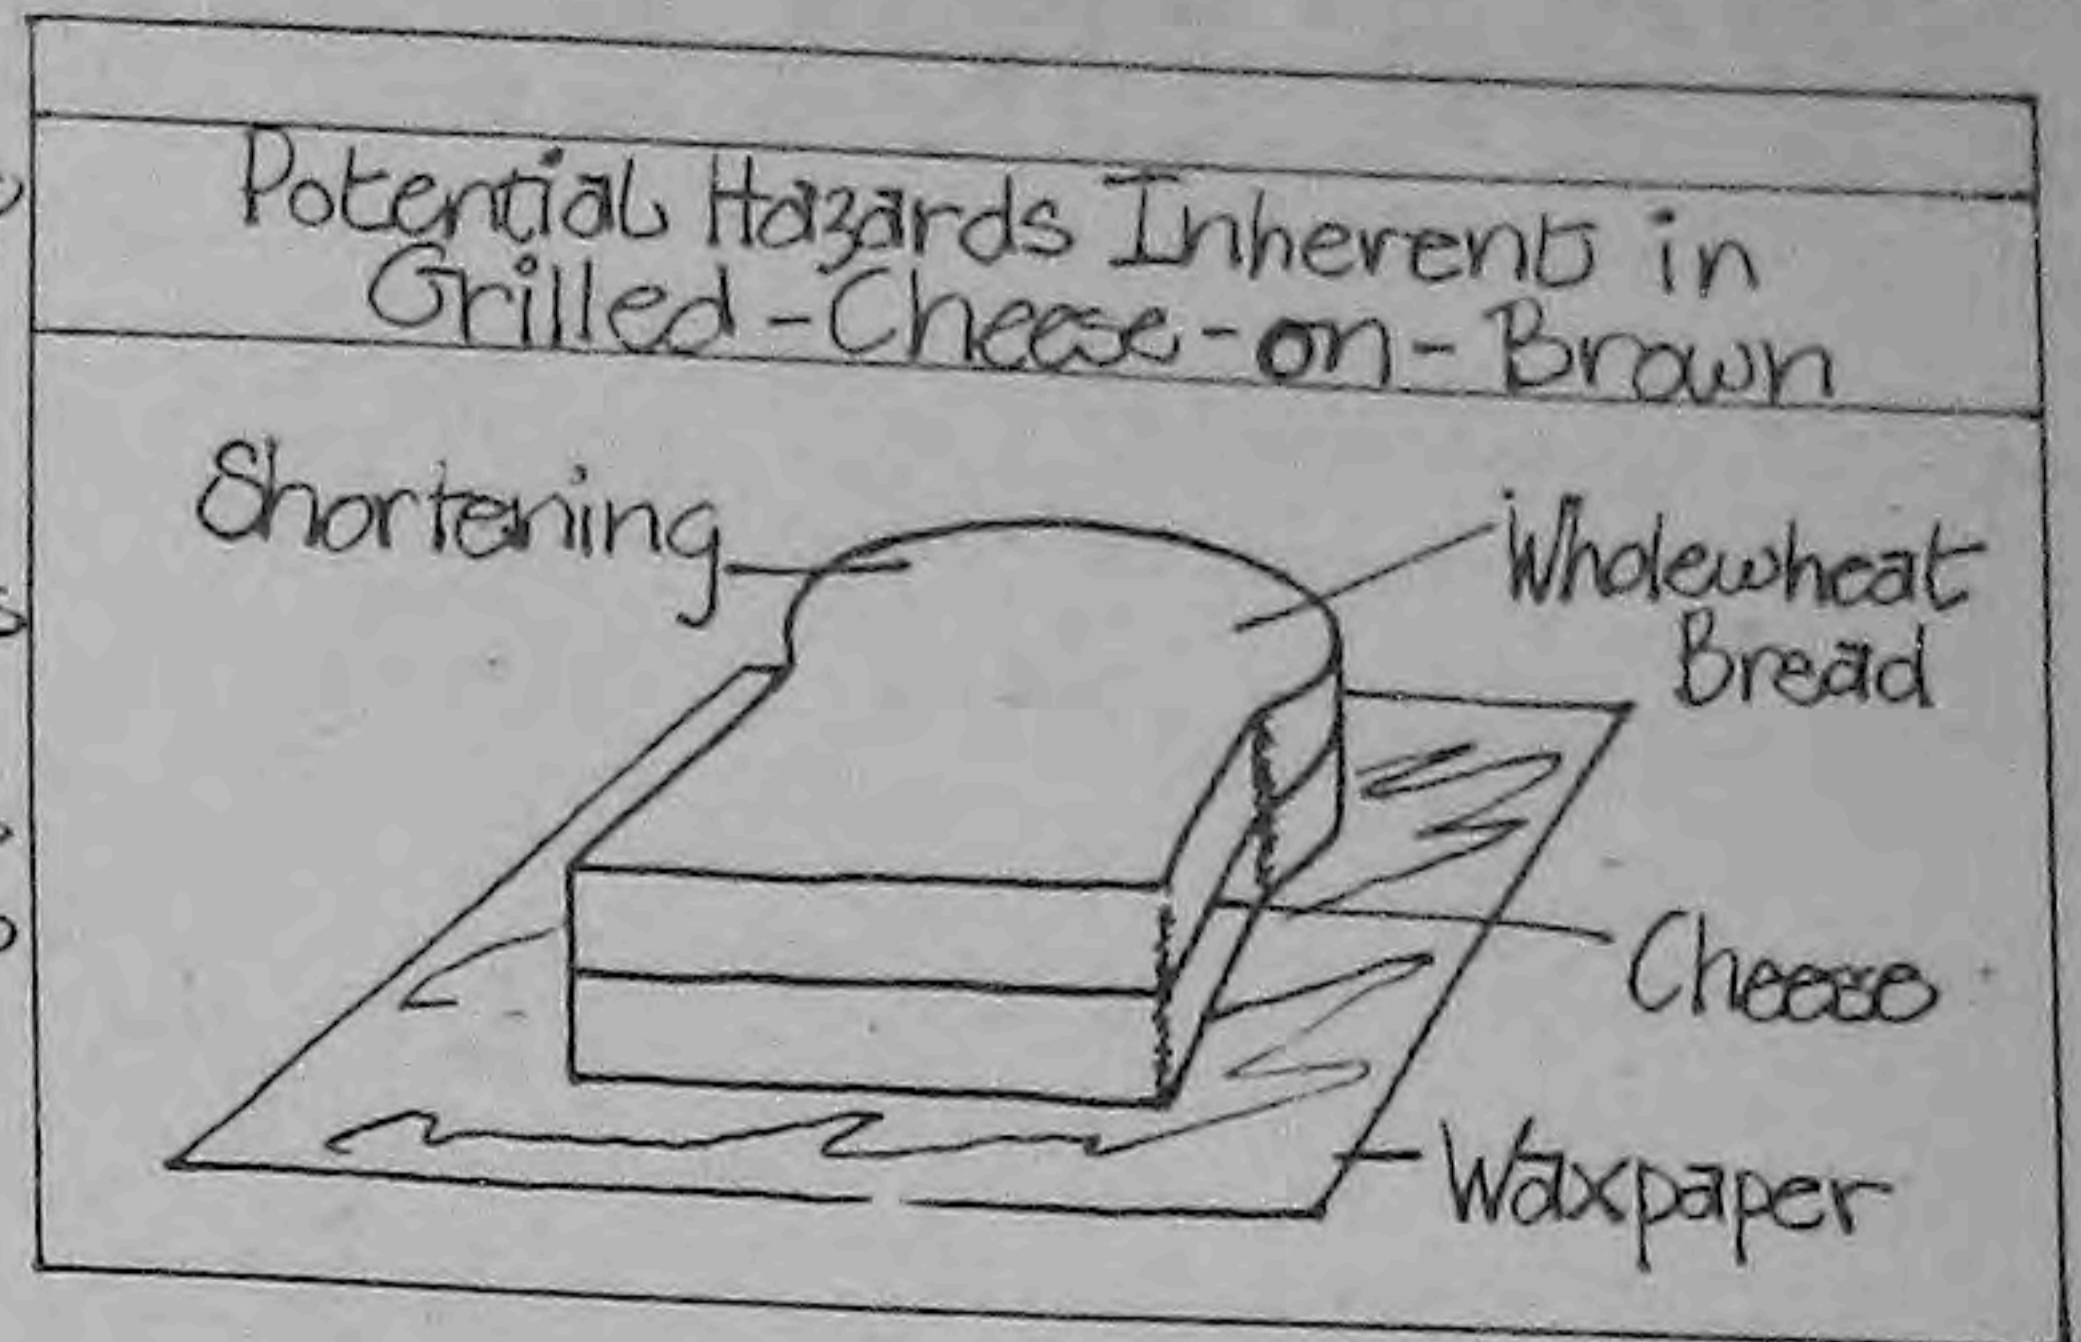 Potential Hazards Inherent in
Grilled-Cheese-on-Brown
Shortening
Wholewheat
Bread
Cheese
Waxpaper